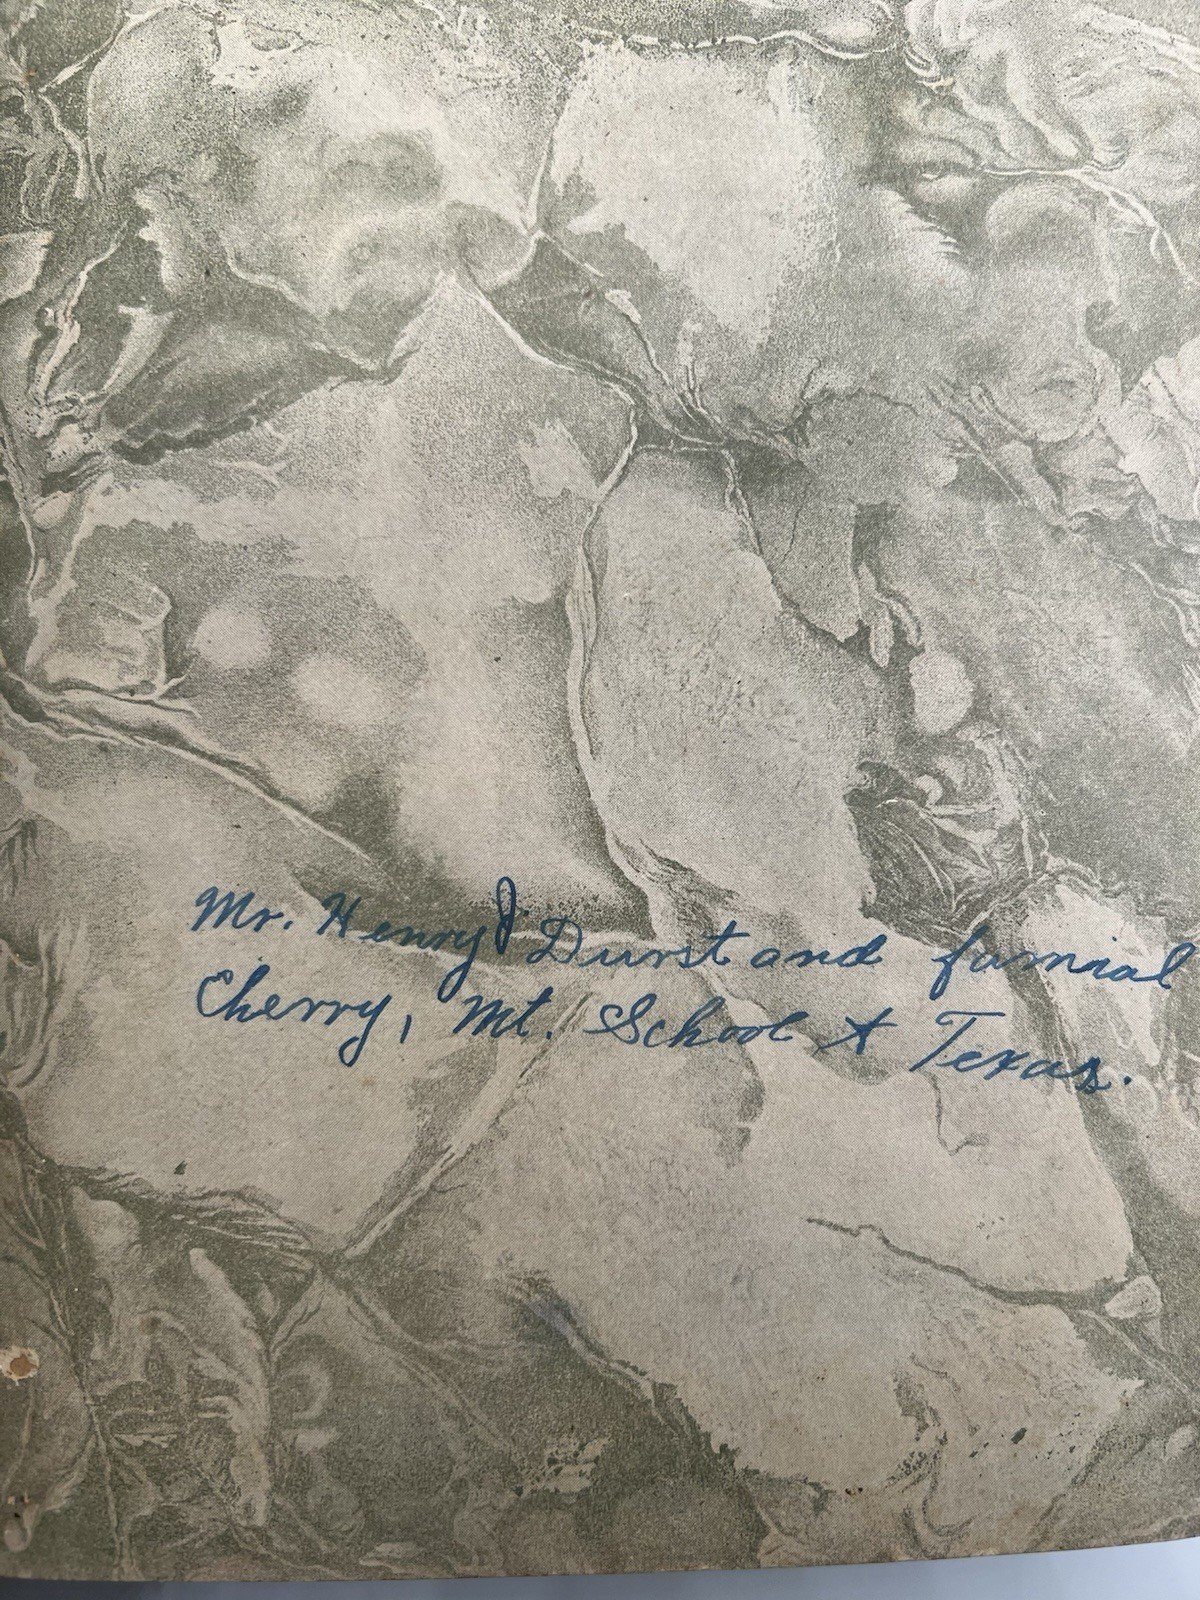 Mr. Henry J Durst and famial
Cherry, Mt. School + Texas.